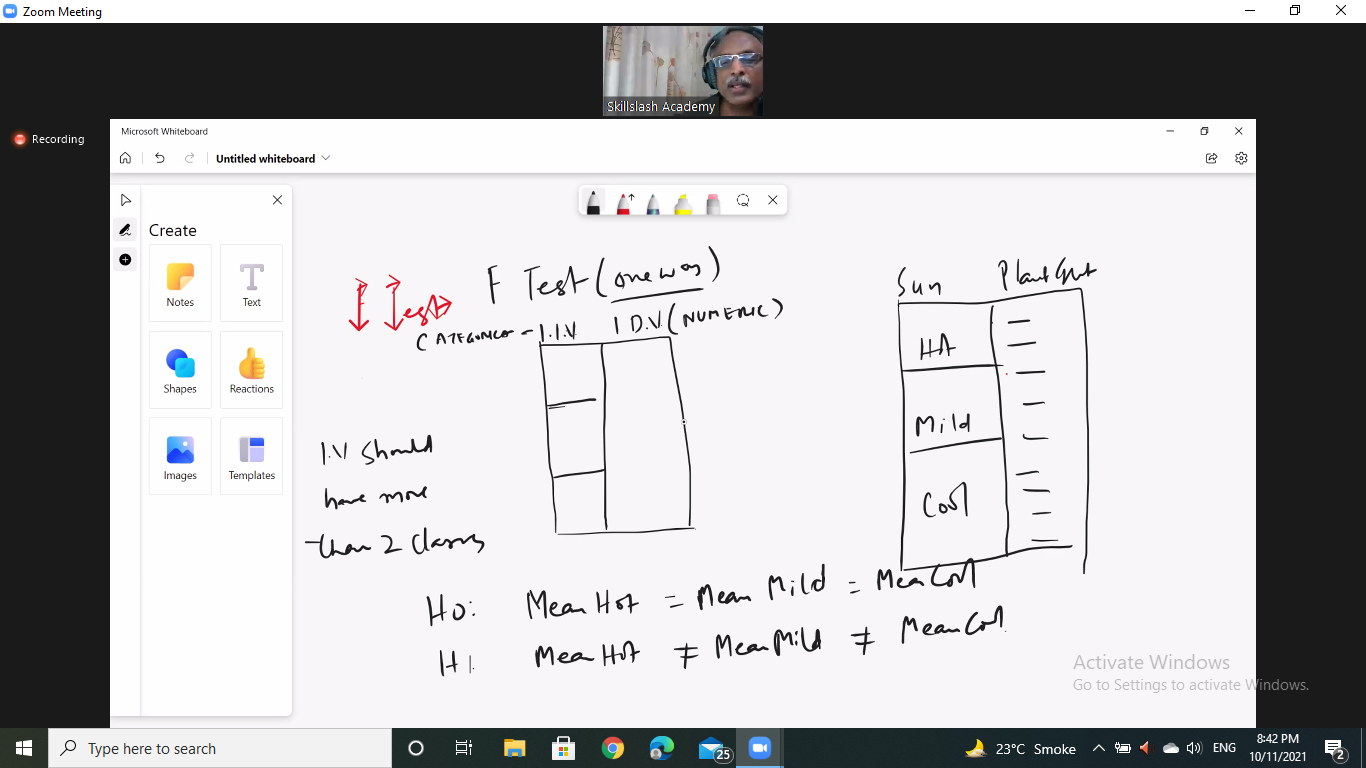 Zoom Meeting
Skillslash Academy
Recording
Microsoft Whiteboard
Untitled whiteboard
Create
Notes
Text
Shapes
Reactions
Images
Templates
F Test (one way)
1.I.V 1 D.V (NUMERIC)
I.V should
have more
than 2 classes
Sun
Hot
Mild
Cool
H0: Mean Hot = Mean Mild = Mean Cool
H1 Mean Hot ≠ Mean Mild ≠ Mean Cool
Activate Windows
Go to Settings to activate Windows.
Type here to search
25
23°C Smoke
ENG
8:42 PM
10/11/2021
2